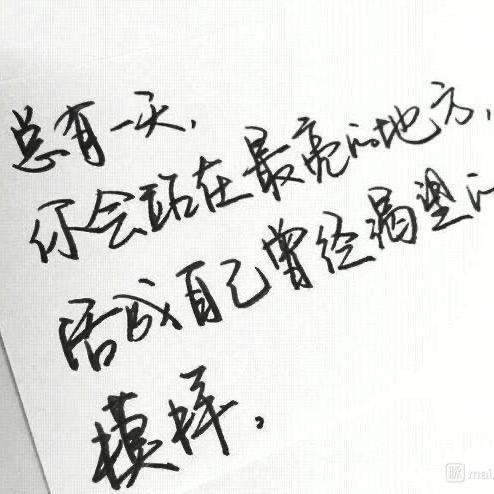 总有一天，
你会站在最亮的地方，
活成自己曾经渴望的
模样。
脉 mai.